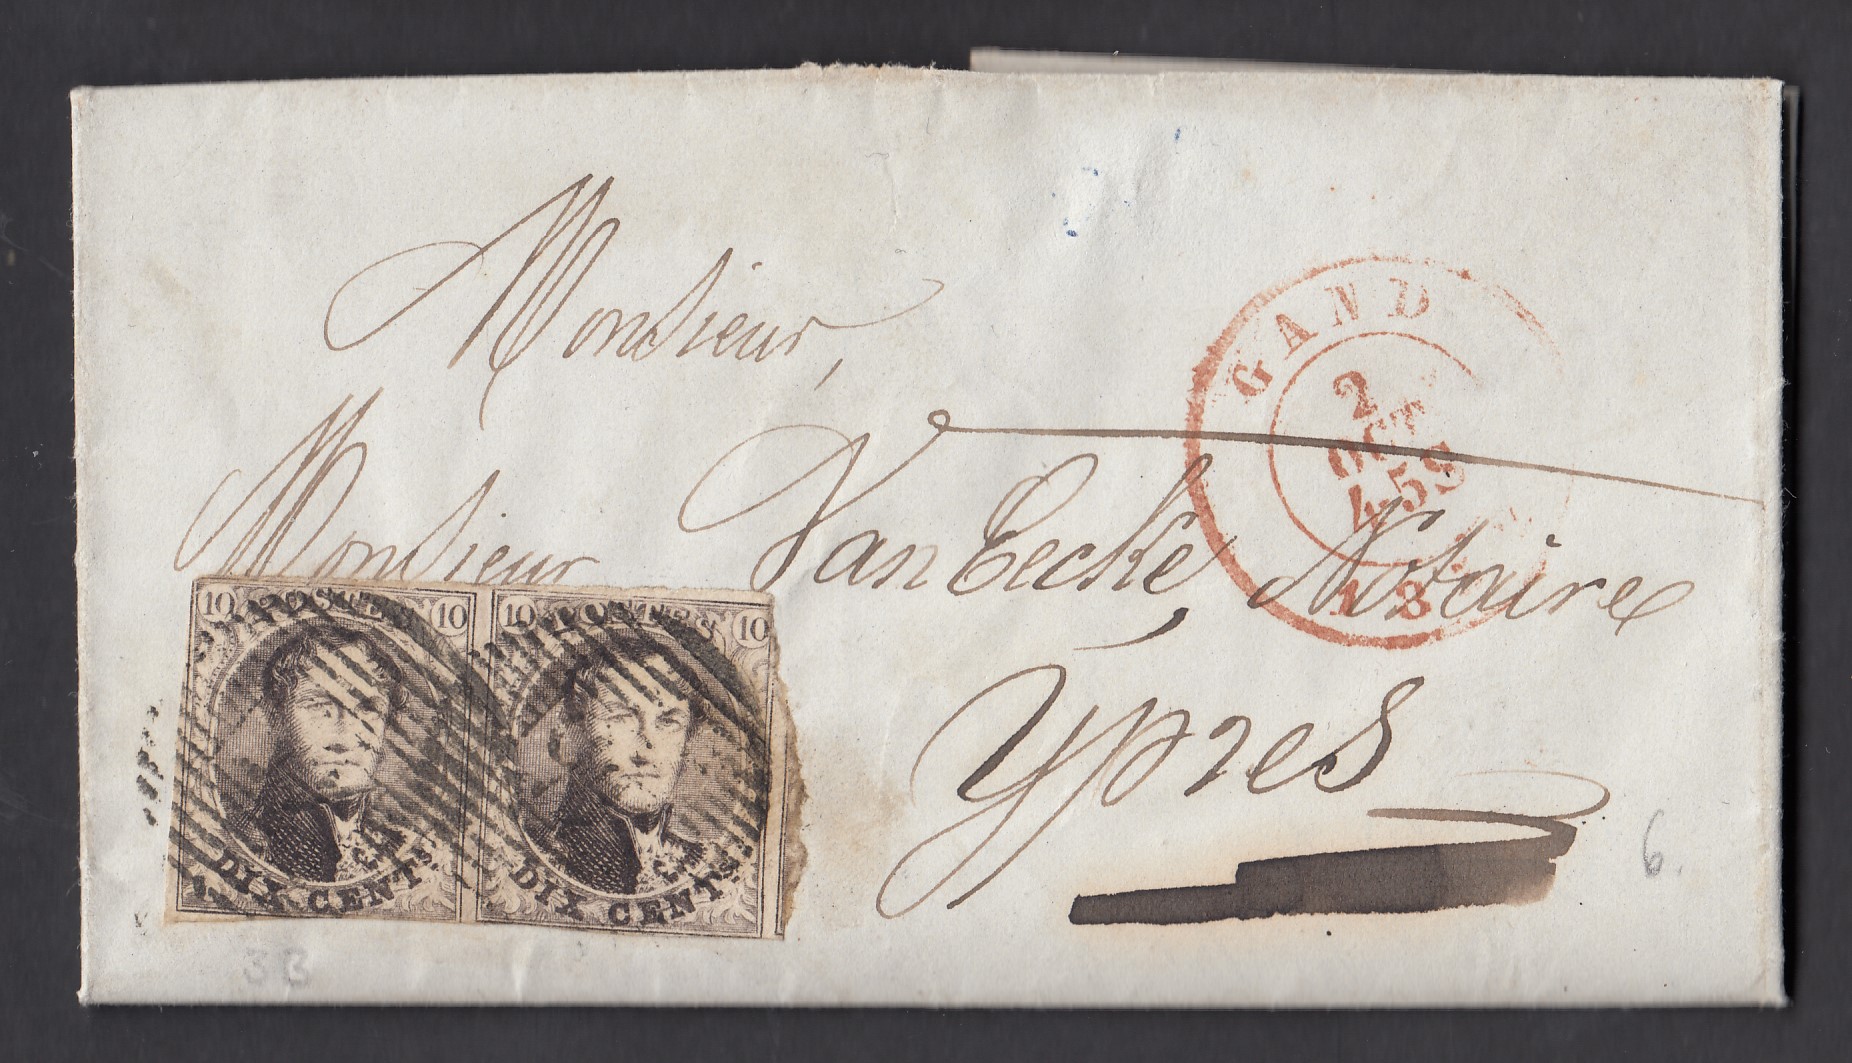 Monsieur,
Monsieur Van Eecke, Notaire
Ypres
GAND
2
OCT
4-5S
10 POSTES 10
DIX CENTS
10 POSTES 10
DIX CENTS
6.